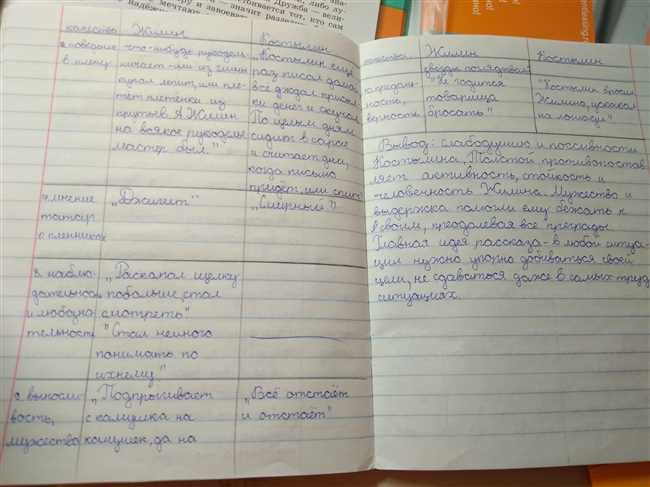 Дружба – вели-
качество Жилин Костылин
поведение в плену
что-нибудь рукодель-
ничает – или из глины
кукол лепит, или пле-
тёт плетёнки из
прутьев. А Жилин
на всякое рукоделье
мастер был."
„Костылин ещё
раз писал домой
всё ждал присыл-
ки денег и скучал.
По целым дням
сидит в сарае
и считает дни,
когда письмо
придёт, или спит"
мнение
татар
о пленниках
„Джигит"
„Смирный"
наблю-
дательнос
и любозна
тельность
„Раскопал щелку
побольше, стал
смотреть"
"Стал немного
понимать по
ихнему"
вынсли-
вость,
мужество
„Подпрыгивает
с камушка на
камушек, да на
„Всё отстаёт
и отстаёт"
качества Жилин Костылин
предан-
ность,
верность
"Не годится
товарища
бросать"
"Костылин бросил
Жилина, ускакал
на лошади"
Вывод: слабодушию и пассивности
Костылина, Толстой противопостав
ляет активность, стойкость и
человечность Жилина. Мужество и
выдержка помогли ему бежать к
своим, преодолевая все преграды
Главная идея рассказа - в любой ситуа-
ции нужно упорно добиваться своей
цели, не сдаваться даже в самых труд
ситуациях.